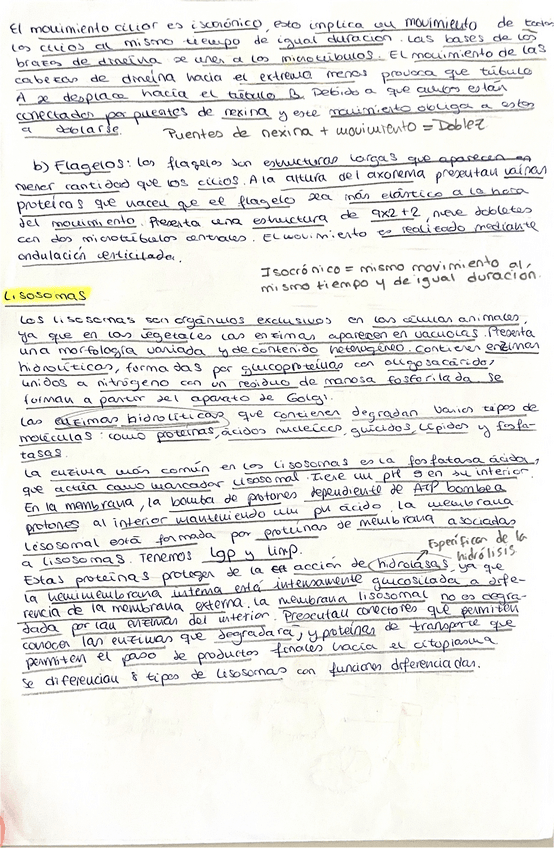 El movimiento ciliar es isocrónico, esto implica un movimiento de todos
los cilios al mismo tiempo de igual duración. Las bases de los
brazos de dineína se unen a los microtúbulos. El movimiento de las
cabezas de dineína hacia el extremo menos provoca que túbulo
A se desplace hacia el túbulo B. Debido a que ambos están
conectados por puentes de nexina y este movimiento obliga a estos
a doblarse.
Puentes de nexina + movimiento = Doblez
b) Flagelos: los flagelos son estructuras largas que aparecen en
menor cantidad que los cilios. A la altura del axonema presentan vainas
proteicas que hacen que el flagelo sea más elástico a la hora
del movimiento. Presenta una estructura de 9x2+2, nueve dobletes
con dos microtúbulos centrales. El movimiento es realizado mediante
ondulación
Isocrónico = mismo movimiento al
mismo tiempo y de igual duración.
Lisosomas
Los lisosomas son orgánulos exclusivos en las células animales,
ya que en las vegetales las enzimas aparecen en vacuolas. Presenta
una morfología variada y de contenido heterogéneo. Contienen enzimas
hidrolíticas, formadas por glucoproteínas con oligosacáridos
unidos a nitrógeno con un residuo de manosa fosforilada. Se
forman a partir del aparato de Golgi.
Las enzimas hidrolíticas que contienen degradan varios tipos de
moléculas: como proteínas, ácidos nucleicos, glúcidos, lípidos y fosfa-
tasas.
La enzima más común en los lisosomas es la fosfatasa ácida,
que actúa como marcador lisosomal. Tiene un pH 5 en su interior.
En la membrana, la bomba de protones dependiente de ATP bombea
protones al interior manteniendo un pH ácido. La membrana
lisosomal está formada por proteínas de membrana asociadas
a lisosomas. Tenemos lgp y limp.
Específicas de la
hidrólisis
Estas proteínas protegen de la acción de hidrolasas, ya que
la hemimembrana interna está intensamente glucosilada a dife-
rencia de la membrana externa. La membrana lisosomal no es degra-
dada por las enzimas del interior. Presentan conectores que permiten
conocer las enzimas que degradará, y proteínas de transporte que
permiten el paso de productos finales hacia el citoplasma.
Se diferencian 8 tipos de lisosomas con funciones diferenciadas.